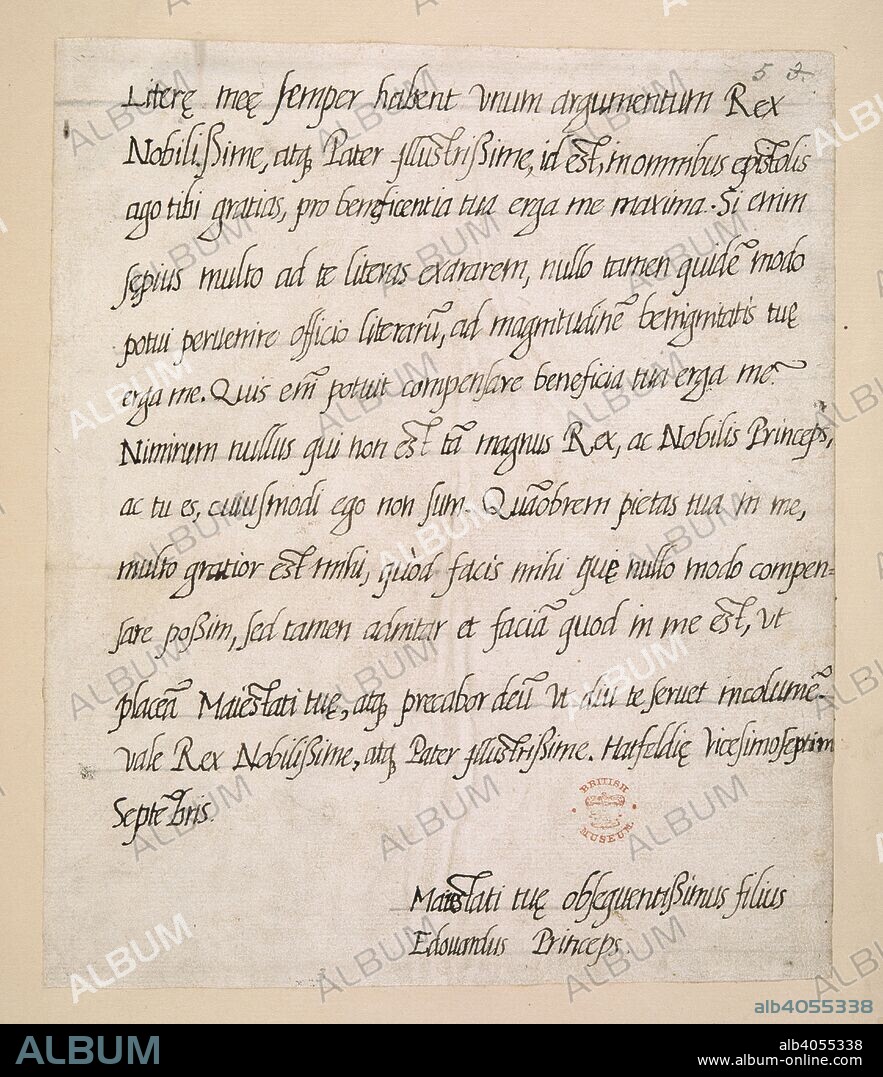 5 2.
Literę meę semper habent vnum argumentum Rex
Nobilißime, atq₃ Pater Illustrißime, id est, in omnibus epistolis
ago tibi gratias, pro beneficentia tua erga me maxima. Si enim
sępius multo ad te literas exararem, nullo tamen quidē modo
potui peruenire officio literarū, ad magnitudinē benignitatis tuę
erga me. Quis em̄ potuit compensare beneficia tua erga me?
Nimirum nullus qui non est tā magnus Rex, ac Nobilis Princeps,
ac tu es, cuiusmodi ego non sum. Quāobrem pietas tua in me,
multo gratior est mihi, quòd facis mihi quę nullo modo compen=
sare poßim, sed tamen adnitar et faciā quod in me est, vt
placeā Maiestati tuę, atq₃ precabor deū vt diu te seruet incolumē.
vale Rex Nobilißime, atq₃ Pater Illustrißime. Hatfeldię vicesimoseptim
Septēbris.
BRITISH
MUSEUM
Maiestati tuę obsequentißimus filius
Edouardus Princeps.
alb4055338
ALBUM
alb4055338
www.album-online.com